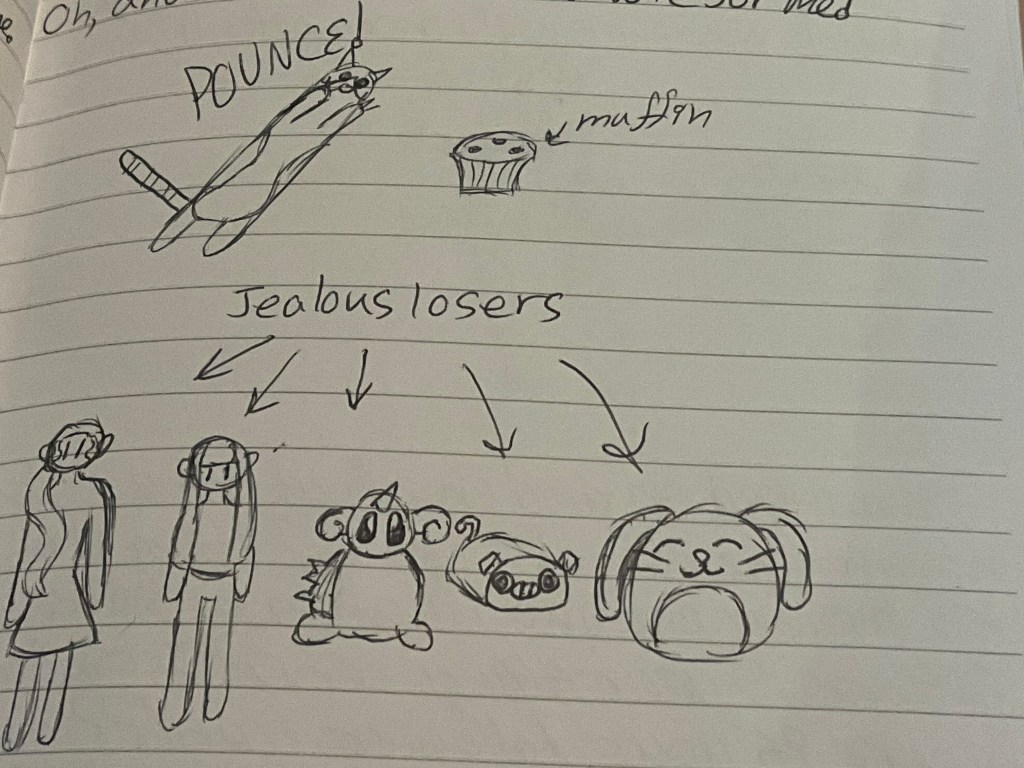 Oh, and
med
POUNCE!
muffin
Jealous losers